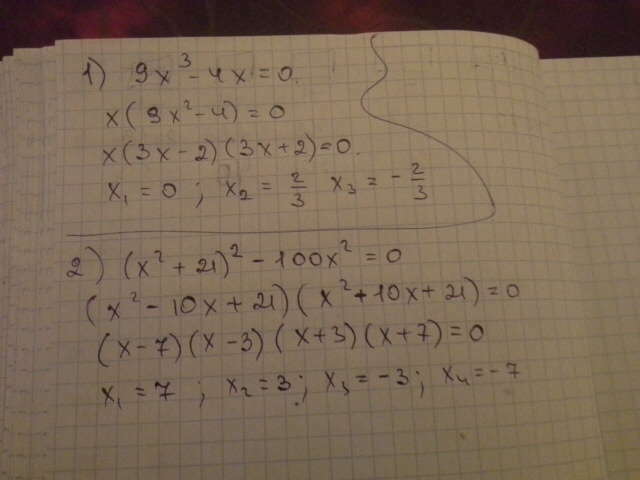 1) 9x³ - 4x = 0.
x(9x² - 4) = 0
x(3x - 2)(3x + 2) = 0.
x₁ = 0 ; x₂ = 2/3 x₃ = - 2/3
2) (x² + 21)² - 100x² = 0
(x² - 10x + 21)(x² + 10x + 21) = 0
(x - 7)(x - 3)(x + 3)(x + 7) = 0
x₁ = 7 ; x₂ = 3 ; x₃ = -3 ; x₄ = -7